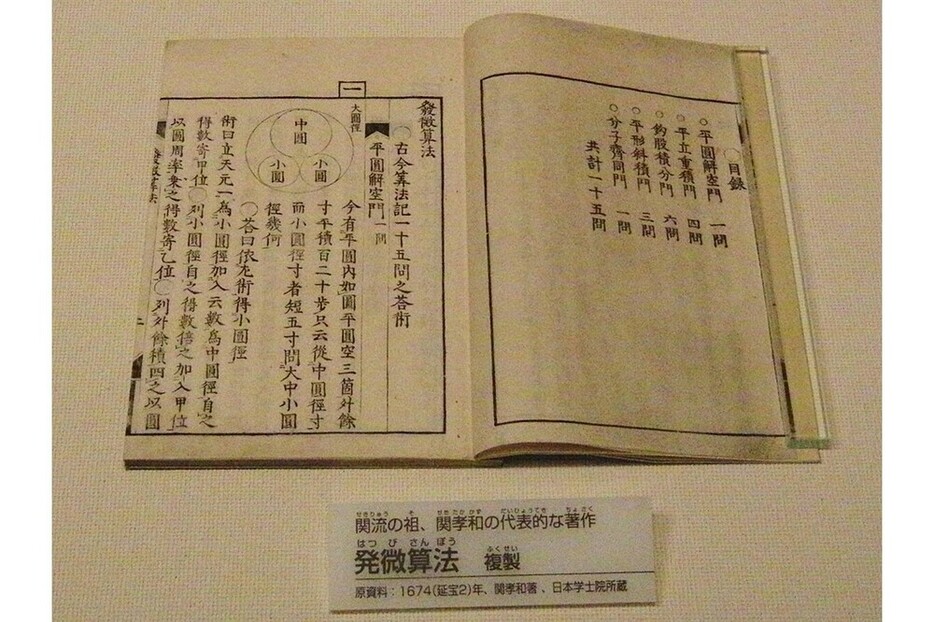 〇目録
○平圓解空門 一問
○平立重積門 四問
○鈎股積分門 六問
○平形斜積門 三問
○分子齊同門 一問
共計一十五問
發微算法
〇古今筭法記一十五問之荅術
平圓解空門 一問
一
大圓徑
中圓
小圓
小圓
今有平圓內如圖平圓空三箇外餘
寸平積百二十步只云從中圓徑寸
而小圓徑寸者短五寸問大中小圓
徑幾何
〇荅曰依左術得小圓徑
術曰立天元一爲小圓徑加入云數爲中圓徑自之
得數寄甲位〇列小圓徑自之得數倍之加入甲位
以圓周率乗之得數寄乙位〇列外餘積四之以圓
發微算法
せきりゅう そ せきたかかず だいひょうてき ちょさく
関流の祖、関孝和の代表的な著作
はつ び さん ぽう ふくせい
発微算法 複製
原資料：1674(延宝2)年、関孝和著、日本学士院所蔵